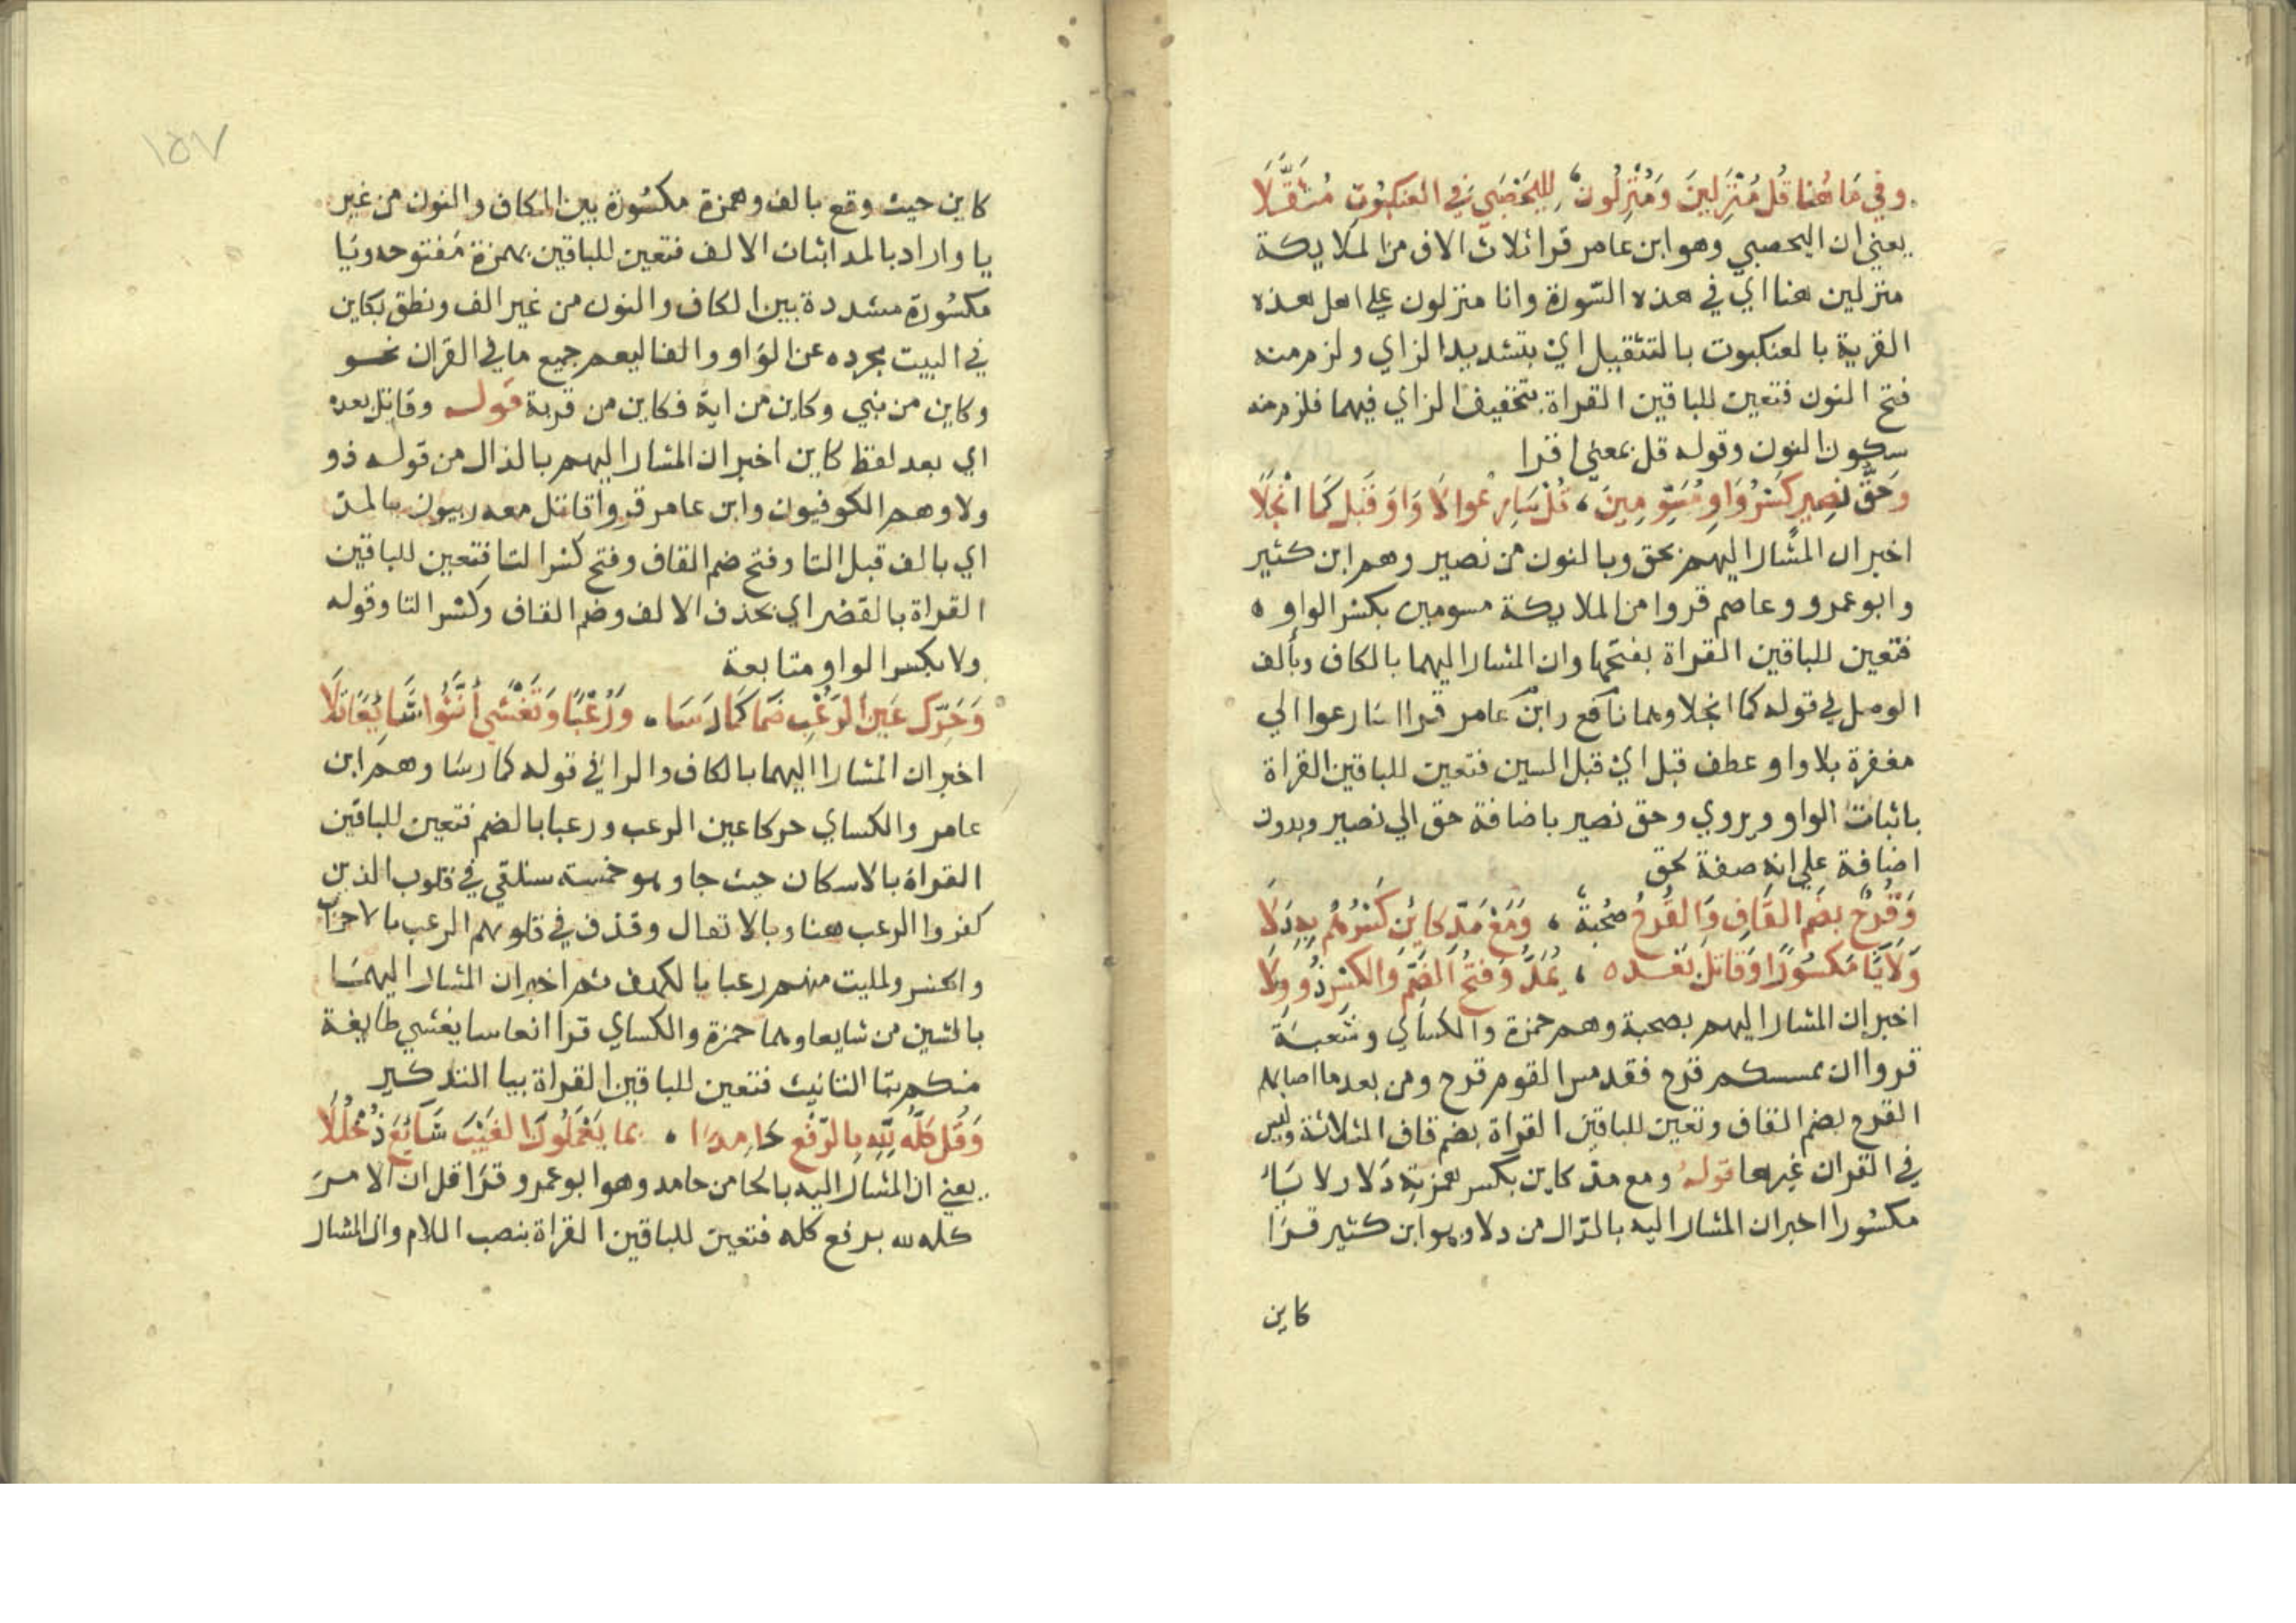 وفي مَا هُنا قُل مُنْزِلِينَ وَمُنْزِلُونَ لليَحْصَبِي في العنكبُوتِ مُثَقَّلَا
يعني ان اليحصبي وهو ابن عامر قرا ثلاث الاف من الملايكة
منزلين هنا اي في هذه السّورة وانا منزلون علي اهل هذه
القرية بالعنكبوت بالتثقيل اي بتشديد الزاي ولزم منه
فتح النون فتعين للباقين القراة بتخفيف الزاي فيهما فلزم منه
سكون النون وقوله قل بمعني اقرا
وَحَقُّ نَصِيرٍ كَسْرُ وَاوِ مُسَوِّمِينَ، قُلْ سَارِعُوا لَا وَاوَ قَبْلُ كَمَا انْجَلَا
اخبر ان المشار اليهم بحق وبالنون من نصير وهم ابن كثير
وابو عمرو وعاصم قروا من الملايكة مسومين بكسر الواو ه
فتعين للباقين القراة بفتحها وان المشار اليهما بالكاف وبألف
الوصل في قوله كما انجلا وهما نافع وابن عامر قرا اسارعوا الي
مغفرة بلا واو عطف قبل اي قبل السين فتعين للباقين القراة
باثبات الواو ويروي وحق نصير باضافة حق الي نصير وبدون
اضافة علي انه صفة لحق
وَقُرْحٌ بِضَمِّ القَافِ وَالقُرْحُ صُحْبَةٌ ، وَمَعْ مَدِّ كَائِنْ كَسْرُ هَمْزَتِهِ دَلَا
وَلَا يَاءَ مَكسُورًا وَقَاتَلَ بَعْدَه ، يُمَدُّ وَفَتْحُ الضَّمِّ وَالكَسْرِ ذُو وِلَا
اخبر ان المشار اليهم بصحبة وهم حمزة والكساي وشعبة
قروا ان يمسسكم قرح فقد مس القوم قرح ومن بعد ما اصابهم
القرح بضم القاف وتعين للباقين القراة بضم قاف الثلاثة وليس
في القران غيرها قوله ومع مدّ كاين بكسر همزته دَلا ولا يَاءَ
مكسُورا اخبر ان المشار اليه بالدّال من دلا وهو ابن كثير قرَا
كاين
١٥٧
كاين حيث وقع بالف وهمزة مكسُورة بين الكاف والنون من غير
يا واراد بالمد اثبات الالف فتعين للباقين بهمزة مَفتوحه ويَا
مكسُورة مشددة بين الكاف والنون من غير الف ونطق بكاين
في البيت مجرده عن الوَاو والفا ليعم جميع ما في القران نحو
وكاين من نبي وكاين من اية فكاين من قرية قوله وقاتل بعده
اي بعد لفظ كاين اخبر ان المشار اليهم بالذال من قوله ذو
ولا وهم الكوفيون وابن عامر قروا قاتل معه ربيون بالمد
اي بالف قبل التا وفتح ضم القاف وفتح كسر التا فتعين للباقين
القراة بالقصر اي بحذف الالف وضم القاف وكسر التا وقوله
ولا بكسر الواو متابعة
وَحُرِّكَ عَينُ الرُّعْبِ ضَمًا كَمَا رَسَا ، وَرُعْبًا وَتَغْشَي أَنَّثُوا شَائِعًا تَلَا
اخبر ان المشار اليهما بالكاف والرا في قوله كما رسَا وهمَا ابن
عامر والكساي حركا عين الرعب ورعبا بالضم فتعين للباقين
القراة بالاسكان حيث جا وهو خمسة سنلقي في قلوب الذين
كفروا الرعب هنا وبالانفال وقذف في قلوبهم الرعب بالاحزاب
والحشر ولمليت منهم رعبا بالكهف ثم اخبر ان المشار اليهمَا
بالشين من شايعا وهما حمزة والكساي قرا انعاسا يغشي طايفة
منكم بتا التانيث فتعين للباقين القراة بيا التذكير
وَقُل كُلُّهُ لِلهِ بِالرَّفْعِ حَامِدًا ، بِمَا يَعْمَلُونَ الغَيْبَ شَايَعَ دُخْلُلَا
يعني ان المشار اليه بالحا من حامد وهو ابو عمرو قرَا قل ان الامرَ
كله لله برفع كله فتعين للباقين القراة بنصب اللام وان المشار